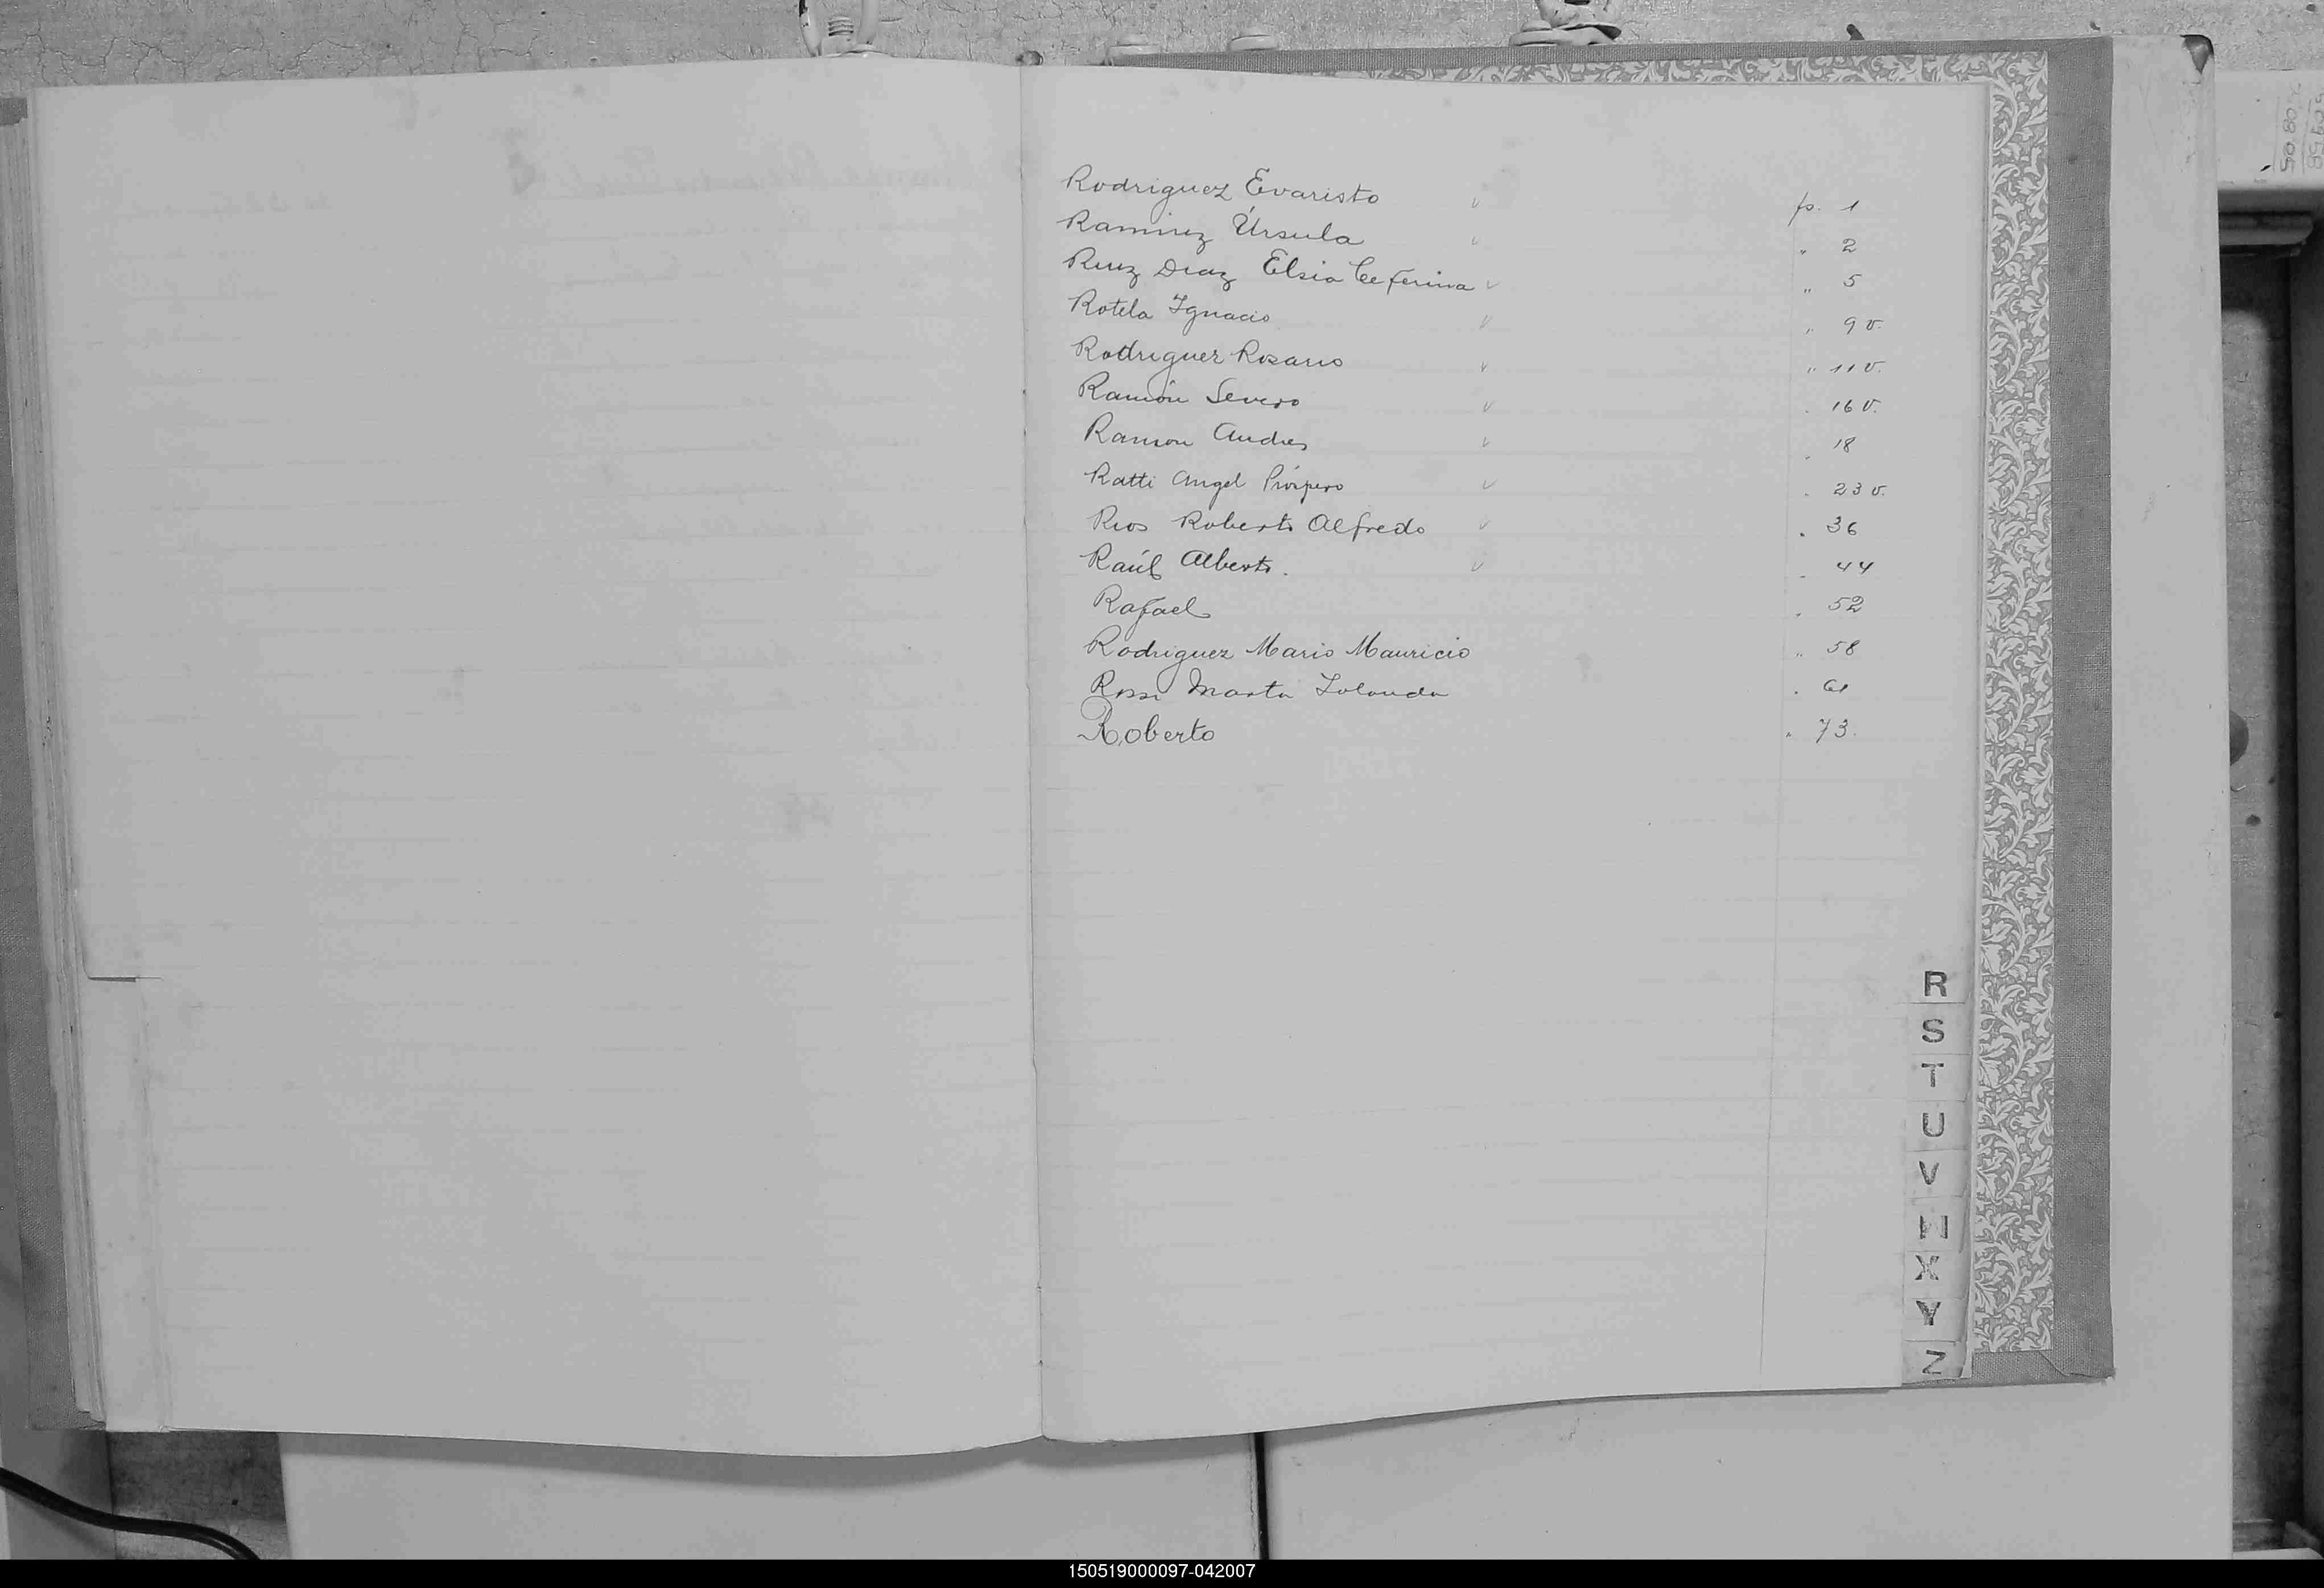 Rodriguez Évaristo v p. 1
Ramirez Úrsula v " 2
Ruiz Diaz Elsia Ceferina v " 5
Rotela Ignacio v " 9 v.
Rodriguez Rosario v " 11 v.
Ramón Severo v " 16 v.
Ramon Andres v " 18
Ratti Angel Próspero v " 23 v.
Rios Roberto Alfredo v " 36
Raúl Alberto. v " 44
Rafael " 52
Rodriguez Mario Mauricio " 58
Rossi Marta Iolanda " 61
Roberto " 73.
R
S
T
U
V
W
X
Y
Z
150519000097-042007